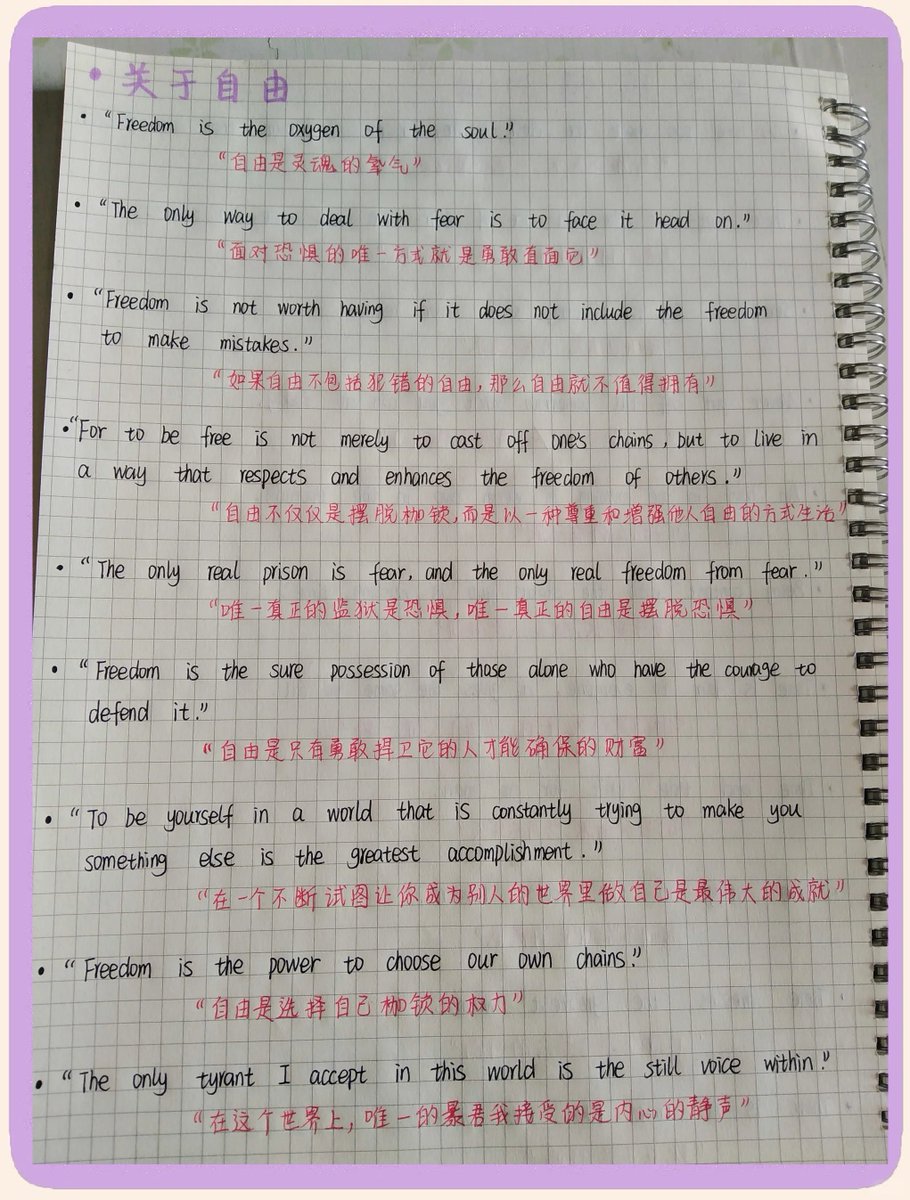 • 关于自由
• “Freedom is the oxygen of the soul.”
“自由是灵魂的氧气”
• “The only way to deal with fear is to face it head on.”
“面对恐惧的唯一方式就是勇敢直面它”
• “Freedom is not worth having if it does not include the freedom
to make mistakes.”
“如果自由不包括犯错的自由,那么自由就不值得拥有”
•“For to be free is not merely to cast off one's chains, but to live in
a way that respects and enhances the freedom of others.”
“自由不仅仅是摆脱枷锁,而是以一种尊重和增强他人自由的方式生活”
• “The only real prison is fear, and the only real freedom from fear.”
“唯一真正的监狱是恐惧,唯一真正的自由是摆脱恐惧”
• “Freedom is the sure possession of those alone who have the courage to
defend it.”
“自由是只有勇敢捍卫它的人才能确保的财富”
• “To be yourself in a world that is constantly trying to make you
something else is the greatest accomplishment.”
“在一个不断试图让你成为别人的世界里做自己是最伟大的成就”
• “Freedom is the power to choose our own chains.”
“自由是选择自己枷锁的权力”
• “The only tyrant I accept in this world is the still voice within.”
“在这个世界上,唯一的暴君我接受的是内心的静声”